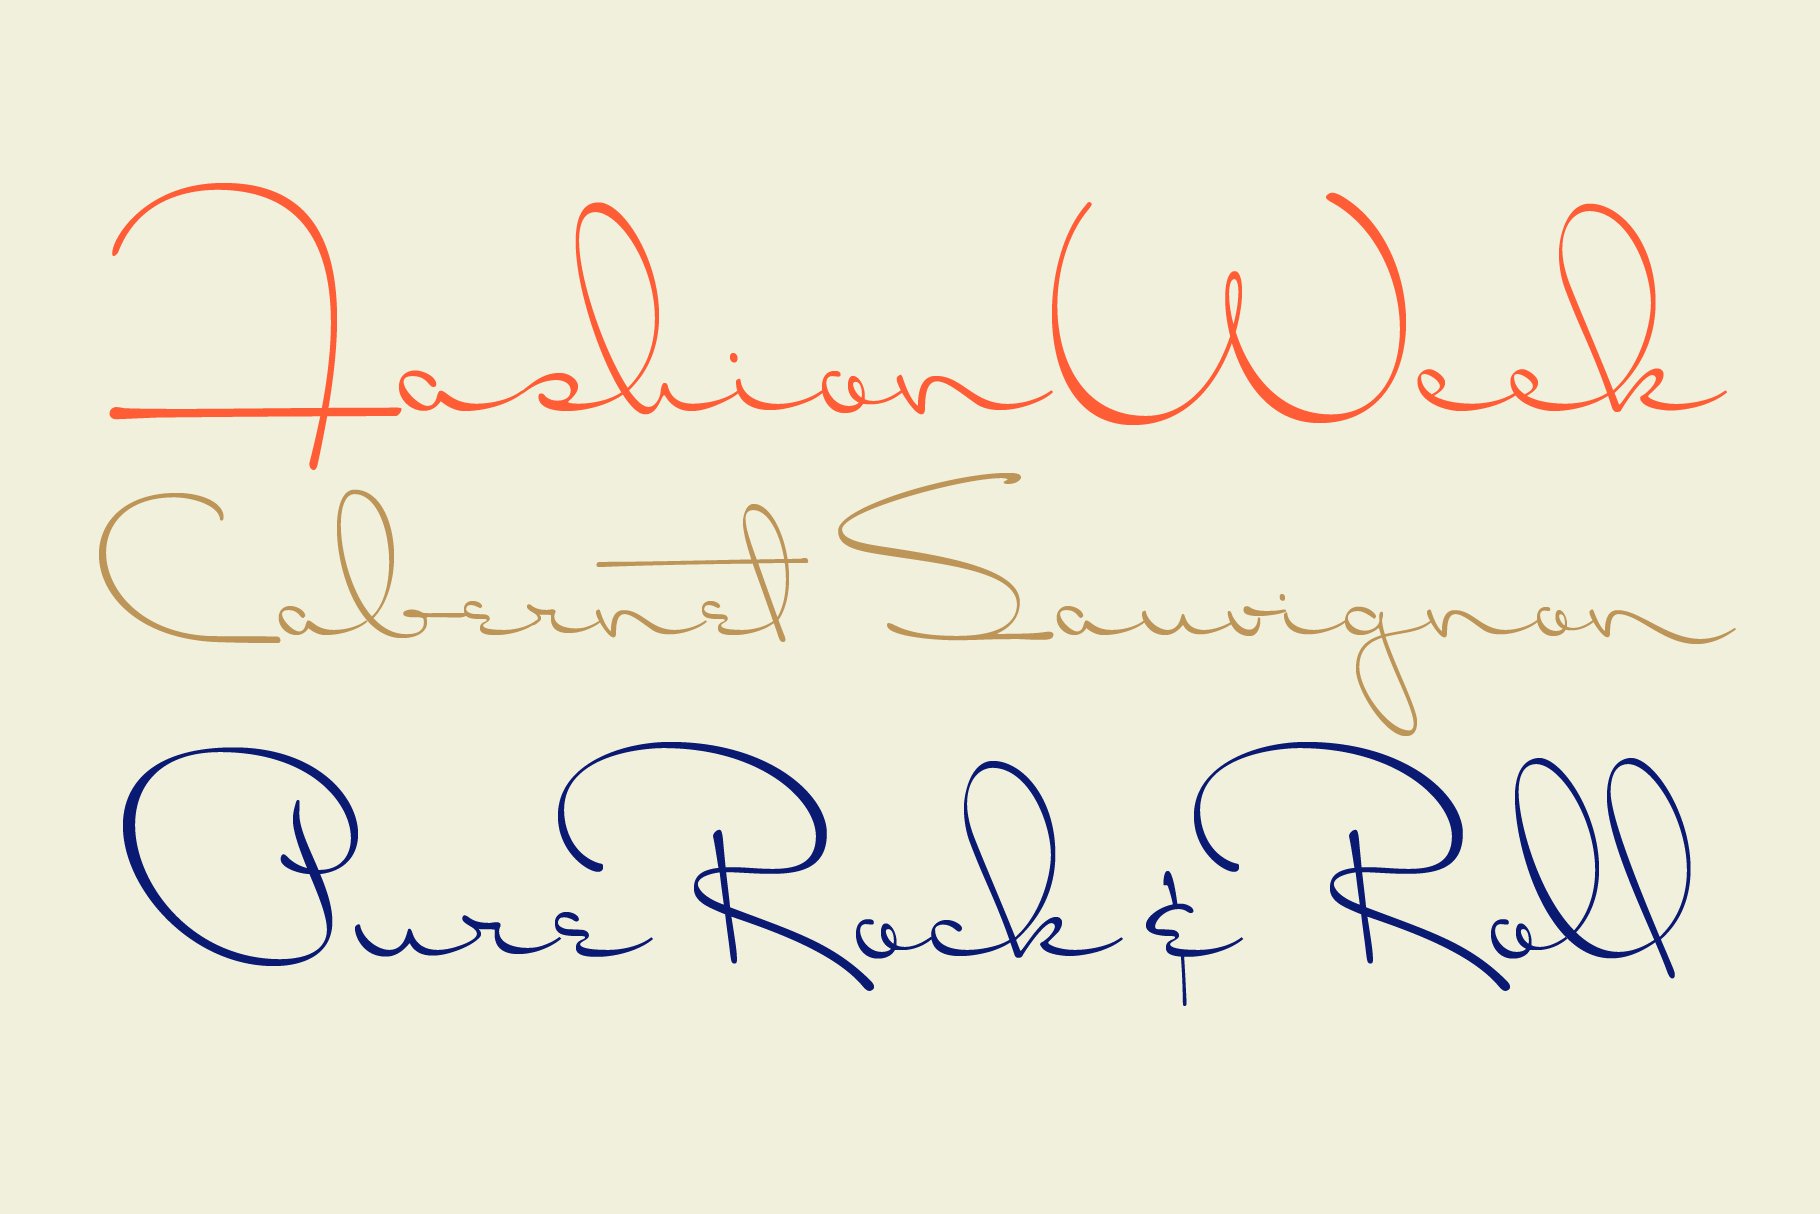 Fashion Week
Cabernet Sauvignon
Pure Rock & Roll